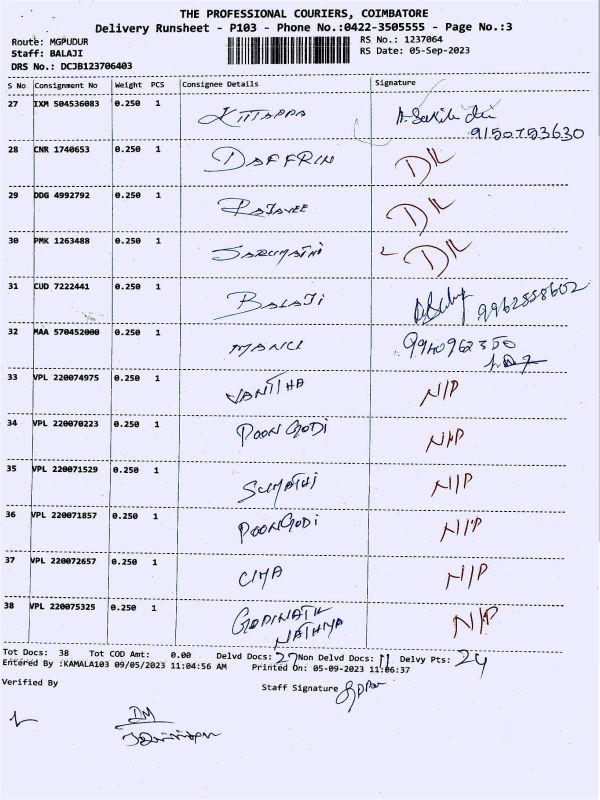 THE PROFESSIONAL COURIERS, COIMBATORE
Delivery Runsheet - P103 - Phone No.:0422-3505555 - Page No.:3
Route: MGPUDUR
Staff: BALAJI
DRS No.: DCJB123706403
RS No.: 1237064
RS Date: 05-Sep-2023
S No Consignment No Weight PCS Consignee Details Signature
27 IXM 504536083 0.250 1 KITTAPPA
9150753630
28 CNR 1740653 0.250 1 DAFFRIN DIL
29 DDG 4992792 0.250 1 DIL
30 PMK 1263488 0.250 1 DIL
31 CUD 7222441 0.250 1 BALAJI 9962558602
32 MAA 570452000 0.250 1
33 VPL 220074975 0.250 1 VANITHA N/P
34 VPL 220070223 0.250 1 POONGODI N/P
35 VPL 220071529 0.250 1 SUMATHI N/P
36 VPL 220071857 0.250 1 POONGODI N/P
37 VPL 220072657 0.250 1 N/P
38 VPL 220075325 0.250 1 GOPINATH N/P
Tot Docs: 38 Tot COD Amt: 0.00 Delvd Docs: 27 Non Delvd Docs: 11 Delvy Pts: 24
Entered By :KAMALA103 09/05/2023 11:04:56 AM Printed On: 05-09-2023 11:06:37
Verified By Staff Signature